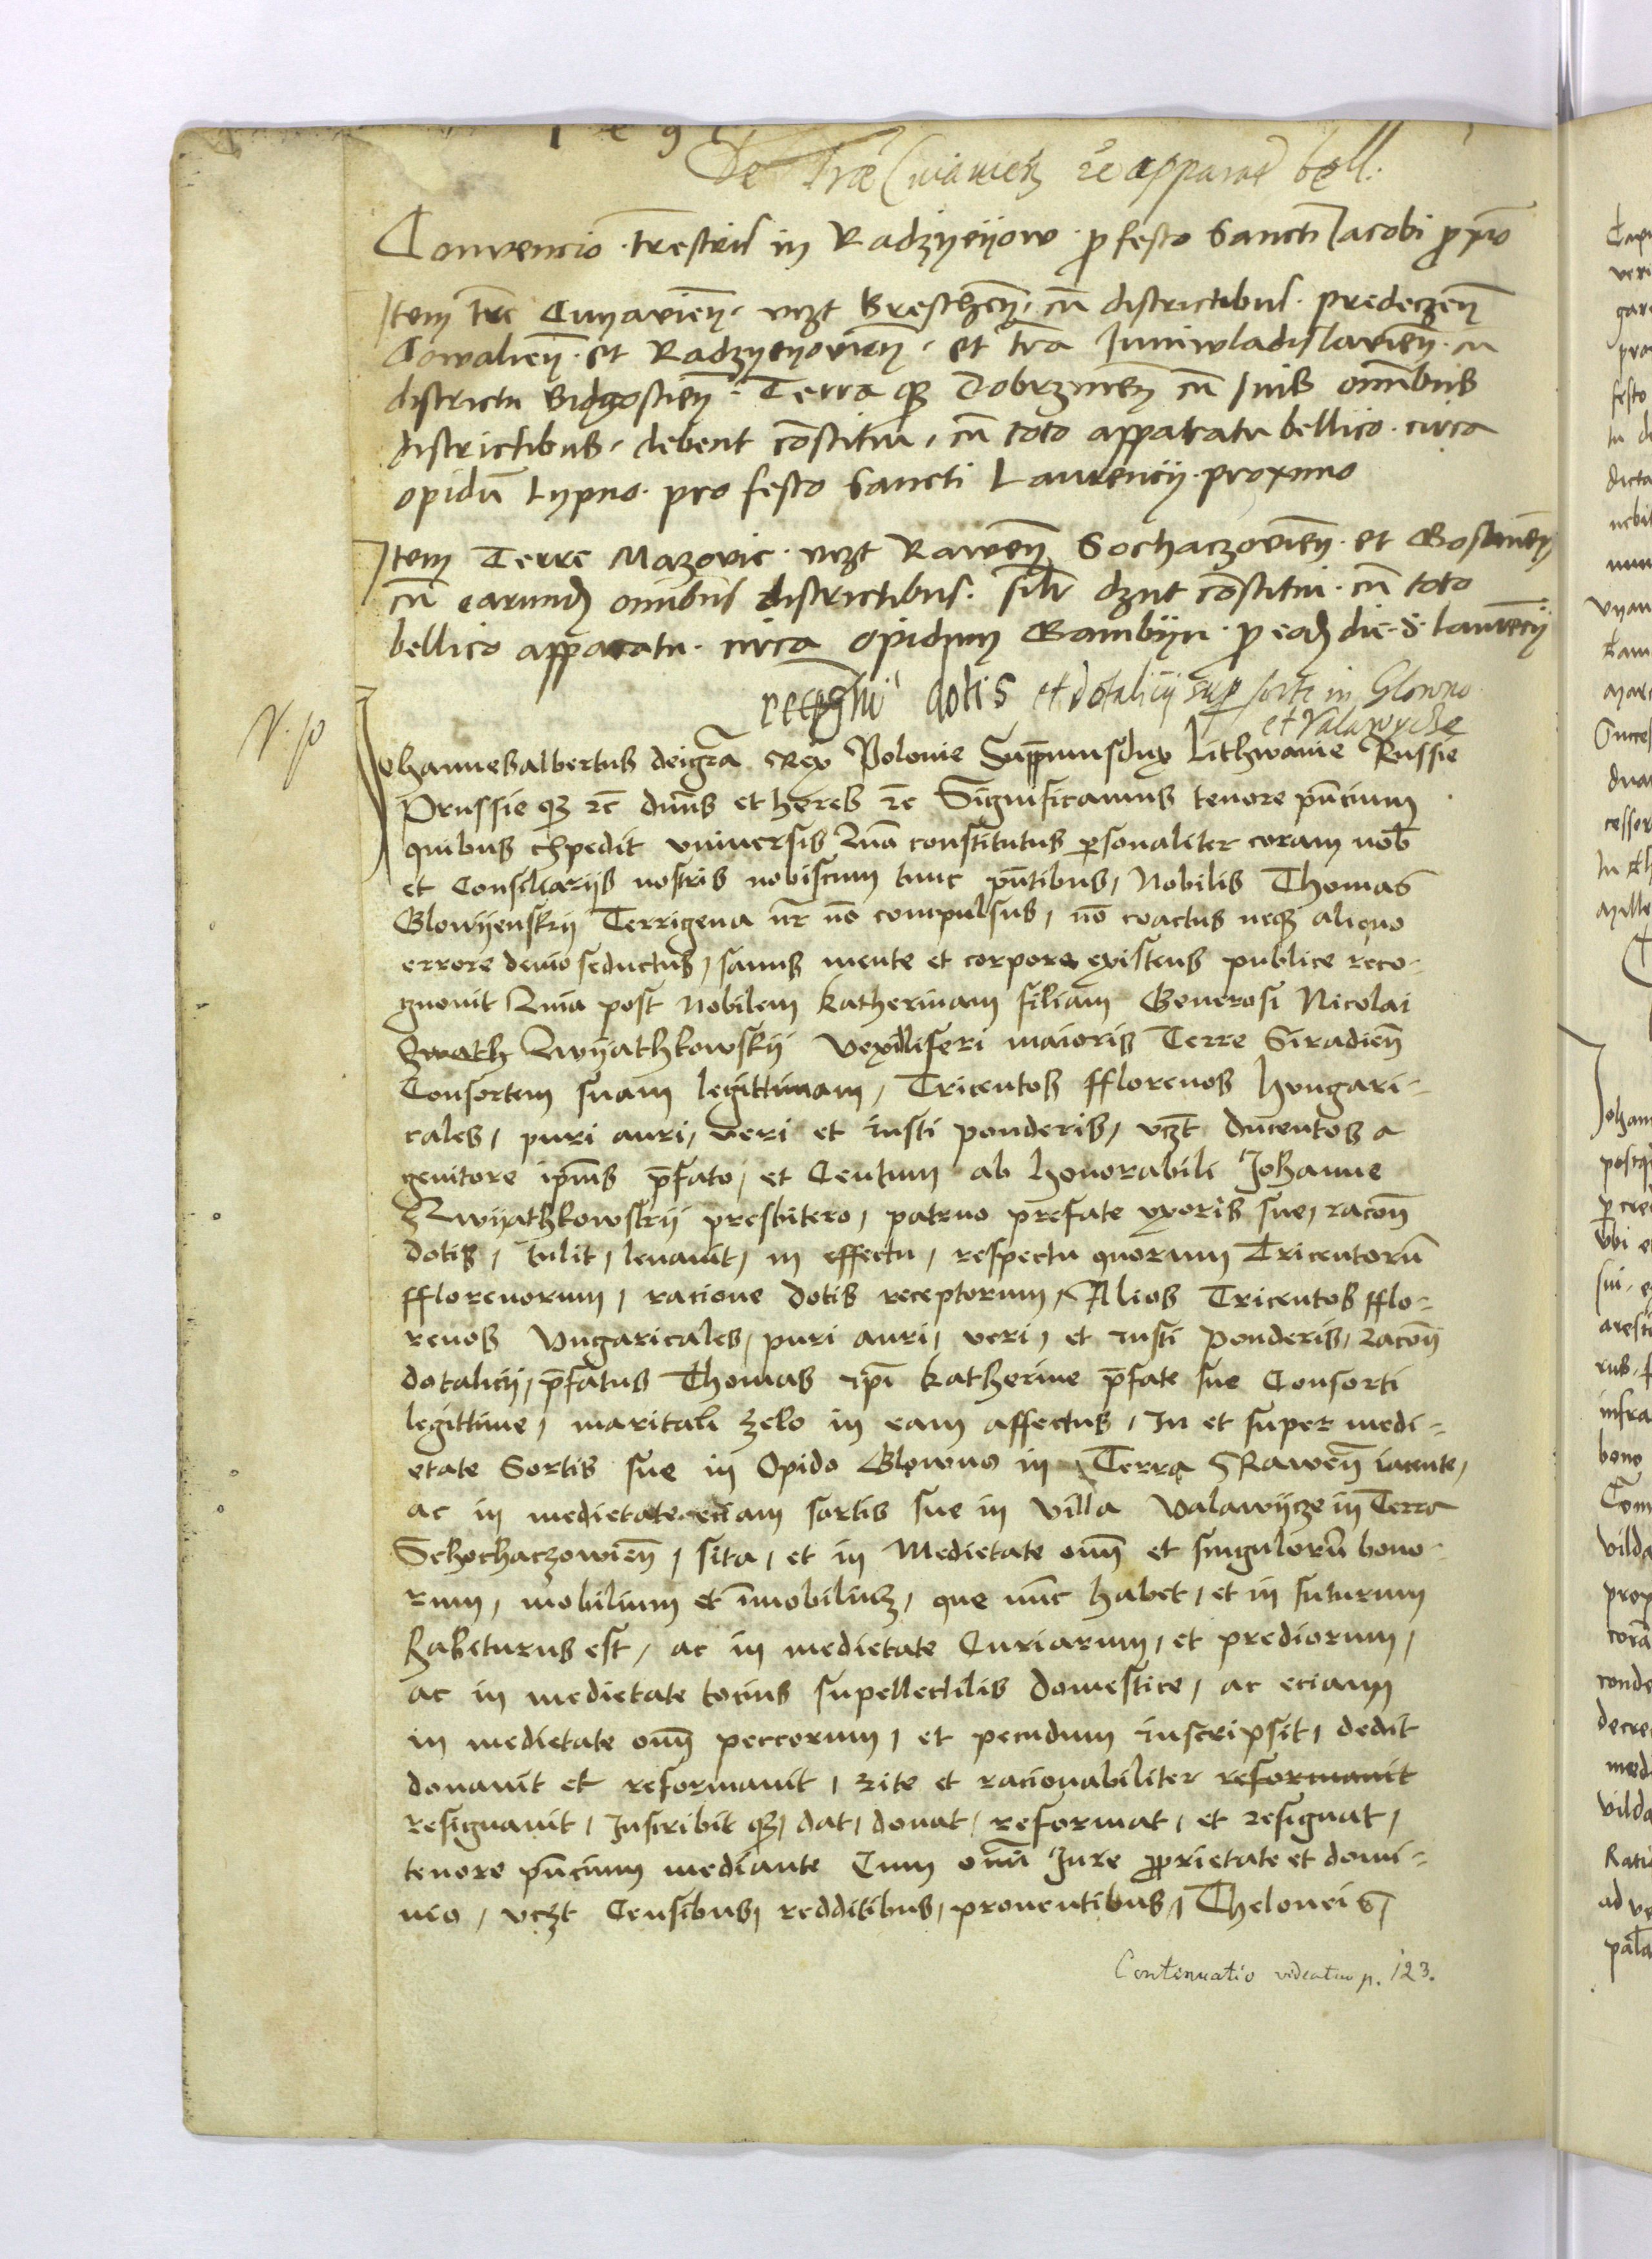 De Trae Cuiavien̄ et apparat bell.
Convencio trestris in Radzyeyow p festo Sancti Iacobi p̱xīo
Item tre Cuyavien̄ vczt Bresthen̄ cū districtibus predeczen̄
Cowalien̄ et Radzyeyovien̄ et tra Iuniwladislavien̄ cū
districtu Bidgostien̄ Terra qz Dobrzinen̄ cū suis omībus
districtibus debent cōstitui cū toto apparatu bellico circa
opidū Lypno pro festo Sancti Laurencij proximo
Item Terre Mazovie vczt Rawen̄ Sochaczovien̄ et Gostinen̄
cū earundz omībus districtibus silr dznt cōstitui cū toto
bellico apparatu circa opidum Gambijn p eadz die S Laurēcij
dotis et dotalicij sup sorte in Glowno
et Valawycze
Johannesalbertus deigrā Rex Polonie Supmusdux Lithwanie Russie
Prussie qz zc dnūs et heres zc Significamus tenore pn̄cium
quibus expedit vniuersis Quia constitutus personaliter coram nob̄
et Consiliarijs nostris nobiscum tunc pn̄tibus, Nobilis Thomas
Glowijenskij Terrigena nr̄ nō compulsus, nō coactus neqz aliquo
errore deuio seductus, sanus mente et corpore existens publice reco-
gnouit Quia post Nobilem Katherinam filiam Generosi Nicolai
Zwijathkowskij Vexilliferi maioris Terre Siradien̄
Consortem suam legittimam, Tricentos fflorenos hungari-
cales, puri auri, veri et iusti ponderis, vczt ducentos a
genitore ip̄ius p̄fato, et Centum ab honorabili Johanne
Zwijathkowskij presbitero, patruo prefate vxoris sue, racon̄
dotis, tulit, leuauit, in effectu, respectu quorum Tricentorū
fflorenorum, racione dotis receptorum, Alios Tricentos fflo-
renos Vngaricales, puri auri, veri, et iusti Ponderis, racōn̄
dotalicij, p̄fatus Thomas ip̄i Katherine p̄fate sue Consorti
legittime, maritali zelo in eam affectus, In et super medi-
etate Sortis sue in Opido Glowno in Terra Rawen̄ iacente,
ac in medietate eciam sortis sue in Villa Valawijcze in Terra
Schochaczowien̄, sita, et in Medietate om̄n̄ et singulorū bono-
rum, mobilium et im̄obiliuz, que nūc habet, et in futurum
habiturus est, ac in medietate Curiarum, et prediorum,
ac in medietate tocius supellectilis domestice, ac eciam
in medietate om̄n̄ peccorum, et pecudum inscripsit, dedit
donauit et reformauit, rite et racionabiliter reformauit
resignauit, Inscribit qz, dat, donat, reformat, et resignat,
tenore pn̄cium mediante Cum om̄i Jure proprietate et domi-
nio, vczt Censibus, redditibus, prouentibus, Theloneis,
Continuatio videatur p. 123.